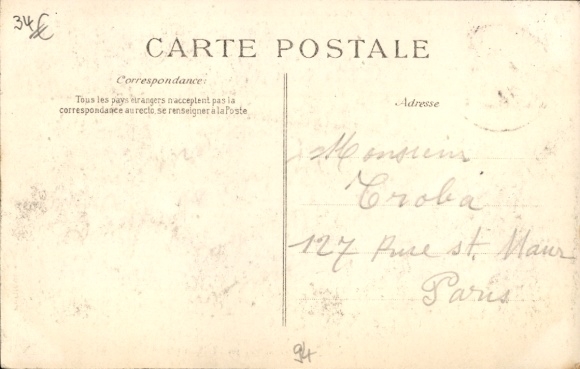 34
CARTE POSTALE
Correspondance:
Tous les pays étrangers n'acceptent pas la
correspondance au recto, se renseigner à la Poste
Adresse
Monsieur
Troba
127 Rue st. Maur
Paris
94